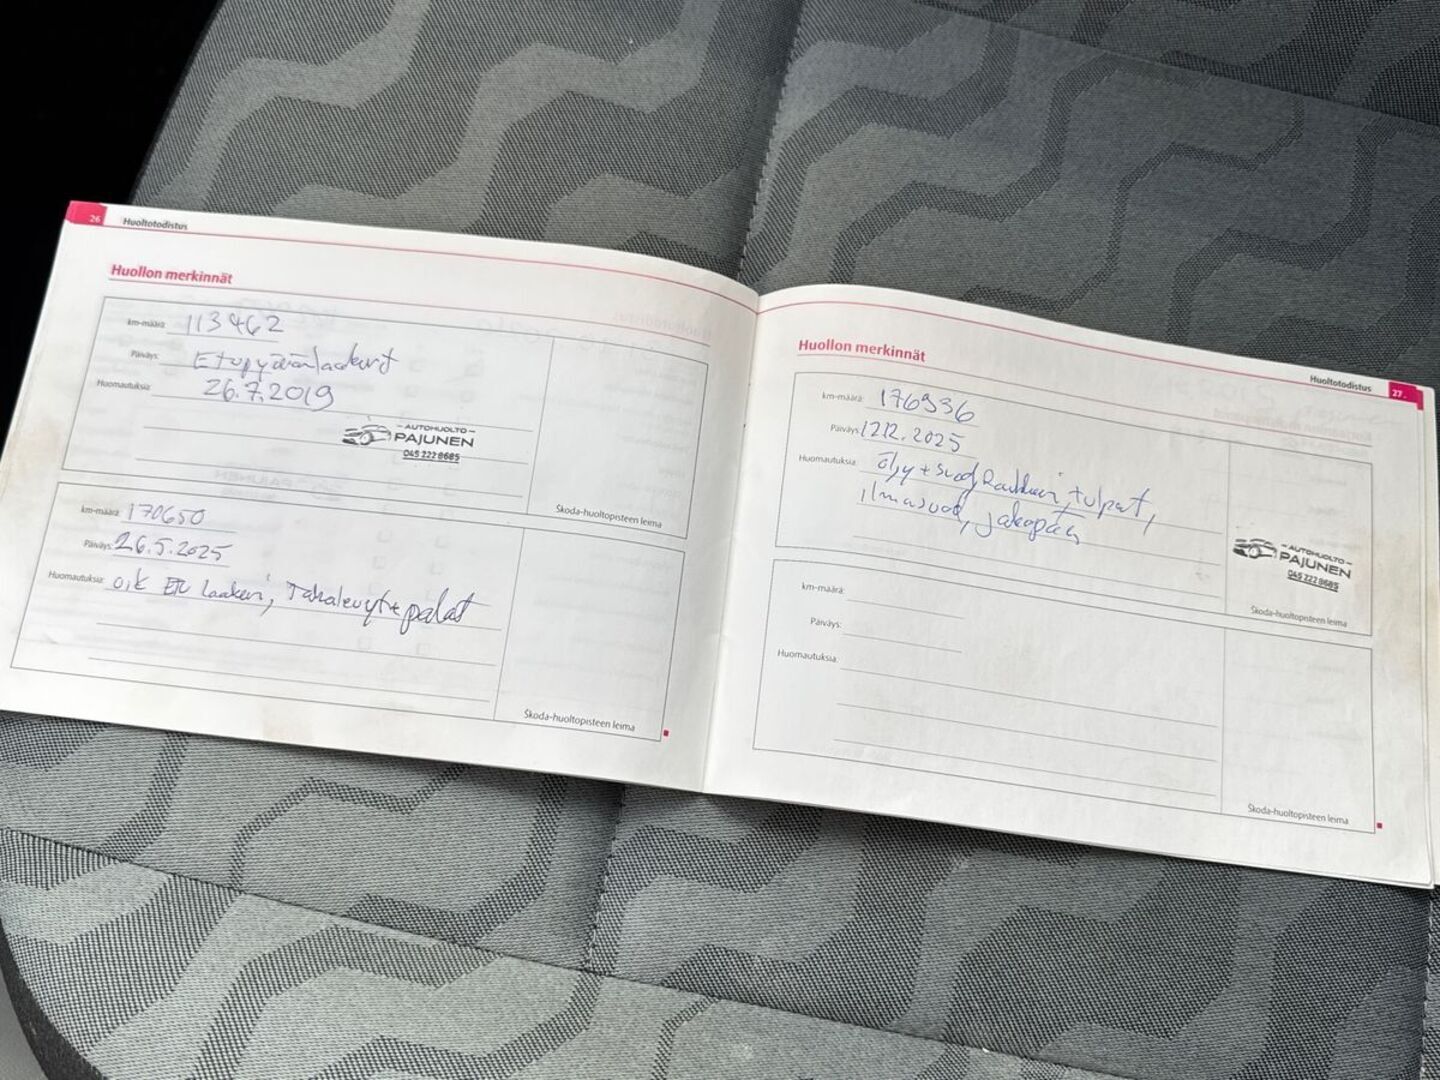 26 Huoltotodistus
Huollon merkinnät
km-määrä: 113462
Päiväys: Etupyöränlaakerit
Huomautuksia: 26.7.2019
AUTOHUOLTO
PAJUNEN
045 222 8685
Škoda-huoltopisteen leima
km-määrä: 170650
Päiväys: 26.5.2025
Huomautuksia: oik Etu laakeri, Takalevyt + palat
Škoda-huoltopisteen leima
Huoltotodistus 27
Huollon merkinnät
km-määrä: 176936
Päiväys: 12.12.2025
Huomautuksia: öljy + suod, Raikkari, tulpat,
ilmasuod, jakopää
AUTOHUOLTO
PAJUNEN
045 222 8685
Škoda-huoltopisteen leima
km-määrä:
Päiväys:
Huomautuksia:
Škoda-huoltopisteen leima